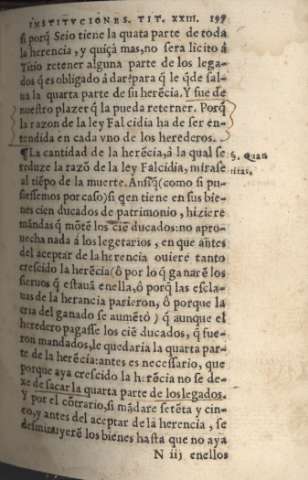 INSTITVCIONES. TIT. XXIII. 199
si porq̃ Seio tiene la quata parte de toda
la herencia, y quiçà mas, no sera licito á
Titio retener alguna parte de los lega-
dos q̃ es obligado á dar? para q̃ le q̃de sal-
ua la quarta parte de su herẽcia. Y fue de
nuestro plazer q̃ la pueda reterner. Porq̃
la razon de la ley Falcidia ha de ser en-
tendida en cada vno de los herederos.
¶La cantidad de la herẽcia, à la qual se
§. Quan
reduze la razõ de la ley Falcidia, mirase
titas.
al tiẽpo de la muerte. Ansiq̃(como si pu-
siessemos por caso) si q̃en tiene en sus bie-
nes cien ducados de patrimonio, hiziere
mãdas q̃ mõtẽ los ciẽ ducados: no apro-
uecha nada á los legetarios, en que antes
del aceptar de la herencia ouiere tanto
crescido la herẽcia (ó por lo q̃ ganarẽ los
sieruos q̃ estauã enella, ó porq̃ las escla-
uas de la herancia parieron, ô porque la
cria del ganado se aumẽtò) q̃ aunque el
heredero pagasse los ciẽ ducados, q̃ fue-
ron mandados, le quedaria la quarta par-
te de la herẽcia: antes es necessario, que
porque aya crescido la hẽrẽcia no se de-
xe de sacar la quarta parte de los legados.
Y por el cõtrario, si mãdare setẽta y cin-
co, y antes del aceptar de la herencia, se
desminuyerẽ los bienes hasta que no aya
N iij enellos